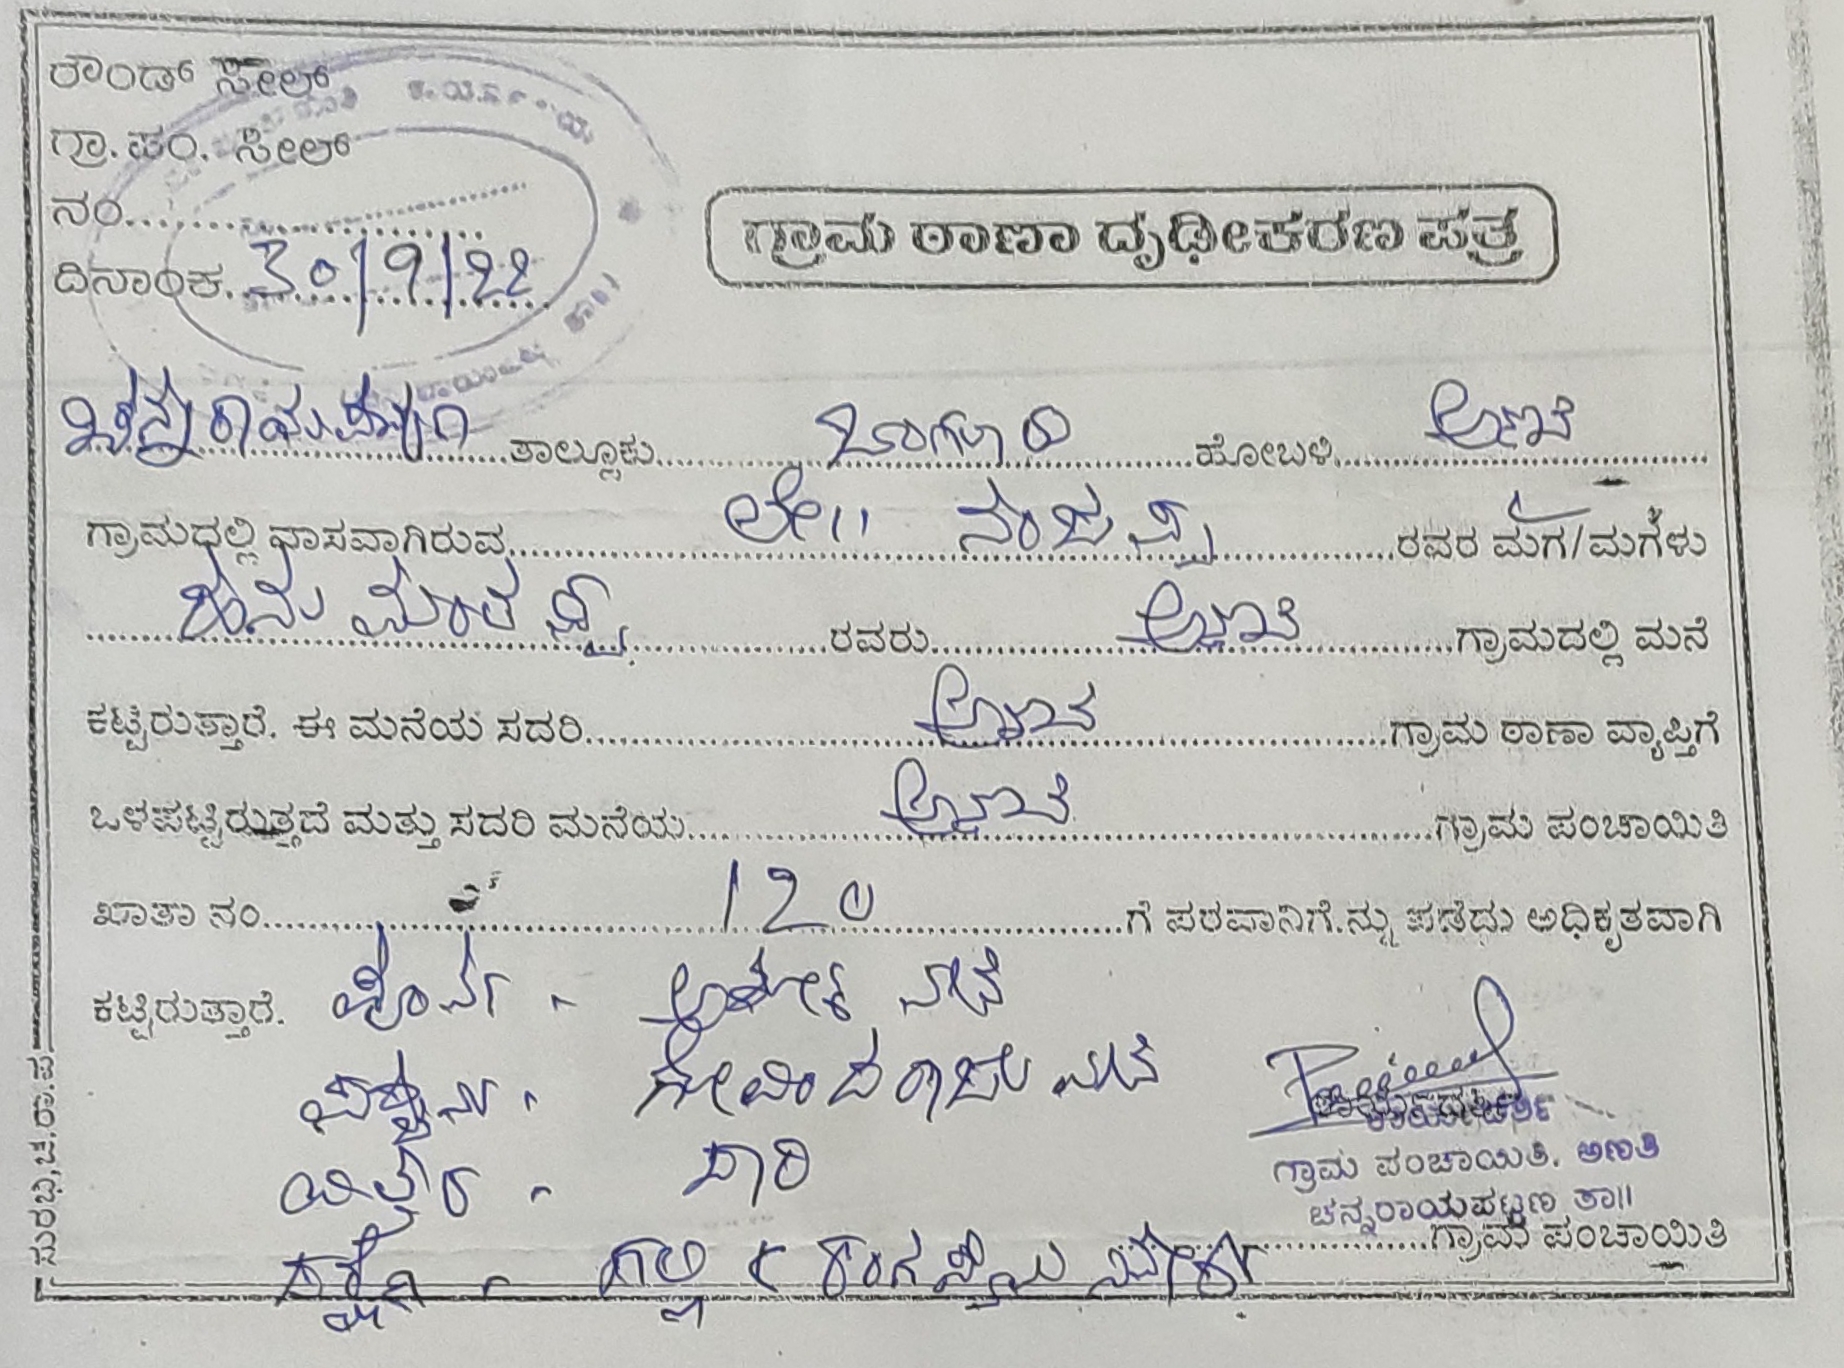 ರೌಂಡ್ ಸೀಲ್
ಗ್ರಾ. ಪಂ. ಸೀಲ್
ನಂ.
ದಿನಾಂಕ. 30/9/22
ಗ್ರಾಮ ಠಾಣಾ ದೃಢೀಕರಣ ಪತ್ರ
ಚನ್ನರಾಯಪಟ್ಟಣ ತಾಲ್ಲೂಕು ಬಾಗೂರು ಹೋಬಳಿ ಅಣತಿ
ಗ್ರಾಮದಲ್ಲಿ ವಾಸವಾಗಿರುವ ಲೇ|| ನಂಜಪ್ಪ ರವರ ಮಗ/ಮಗಳು
ಹನುಮಂತಪ್ಪ ರವರು ಅಣತಿ ಗ್ರಾಮದಲ್ಲಿ ಮನೆ
ಕಟ್ಟಿರುತ್ತಾರೆ. ಈ ಮನೆಯ ಸದರಿ ಅಣತಿ ಗ್ರಾಮ ಠಾಣಾ ವ್ಯಾಪ್ತಿಗೆ
ಒಳಪಟ್ಟಿರುತ್ತದೆ ಮತ್ತು ಸದರಿ ಮನೆಯ ಅಣತಿ ಗ್ರಾಮ ಪಂಚಾಯಿತಿ
ಖಾತಾ ನಂ. 120 ಗೆ ಪರವಾನಿಗೆ.ನ್ನು ಪಡೆದು ಅಧಿಕೃತವಾಗಿ
ಕಟ್ಟಿರುತ್ತಾರೆ. ಪೂರ್ವ - ಮನೆ
ಪಶ್ಚಿಮ - ಗೋವಿಂದರಾಜು ಮನೆ
ಉತ್ತರ - ದಾರಿ
ದಕ್ಷಿಣ - ಗಲ್ಲಿ
ಕಾರ್ಯದರ್ಶಿ
ಗ್ರಾಮ ಪಂಚಾಯಿತಿ. ಅಣತಿ
ಚನ್ನರಾಯಪಟ್ಟಣ ತಾ||
ಗ್ರಾಮ ಪಂಚಾಯಿತಿ
ಸುರಭಿ, ಚ.ರಾ.ಪ